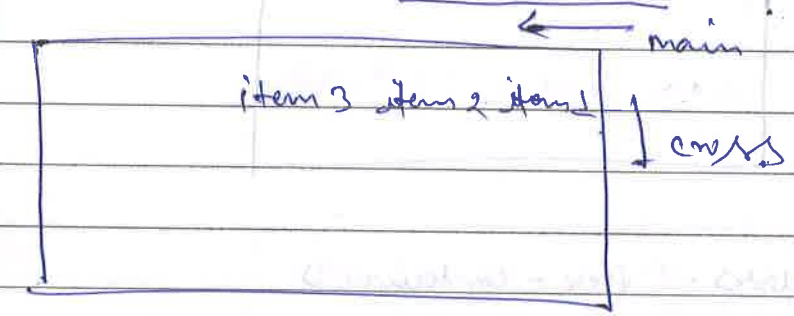 main
item 3 item 2 item 1
cross